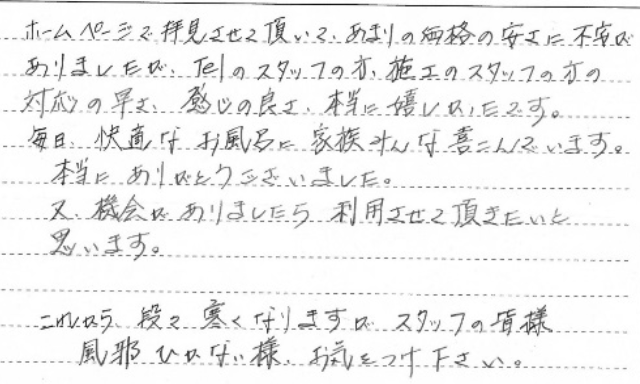 ホームページで拝見させて頂いて、あまりの価格の安さに不安が
ありましたが、Telのスタッフの方、施工のスタッフの方の
対応の早さ、感じの良さ、本当に嬉しかったです。
毎日、快適なお風呂に家族みんな喜こんでいます。
本当にありがとうございました。
又、機会がありましたら利用させて頂きたいと
思います。
これから、段々寒くなりますが、スタッフの皆様
風邪ひかない様、お気をつけ下さい。